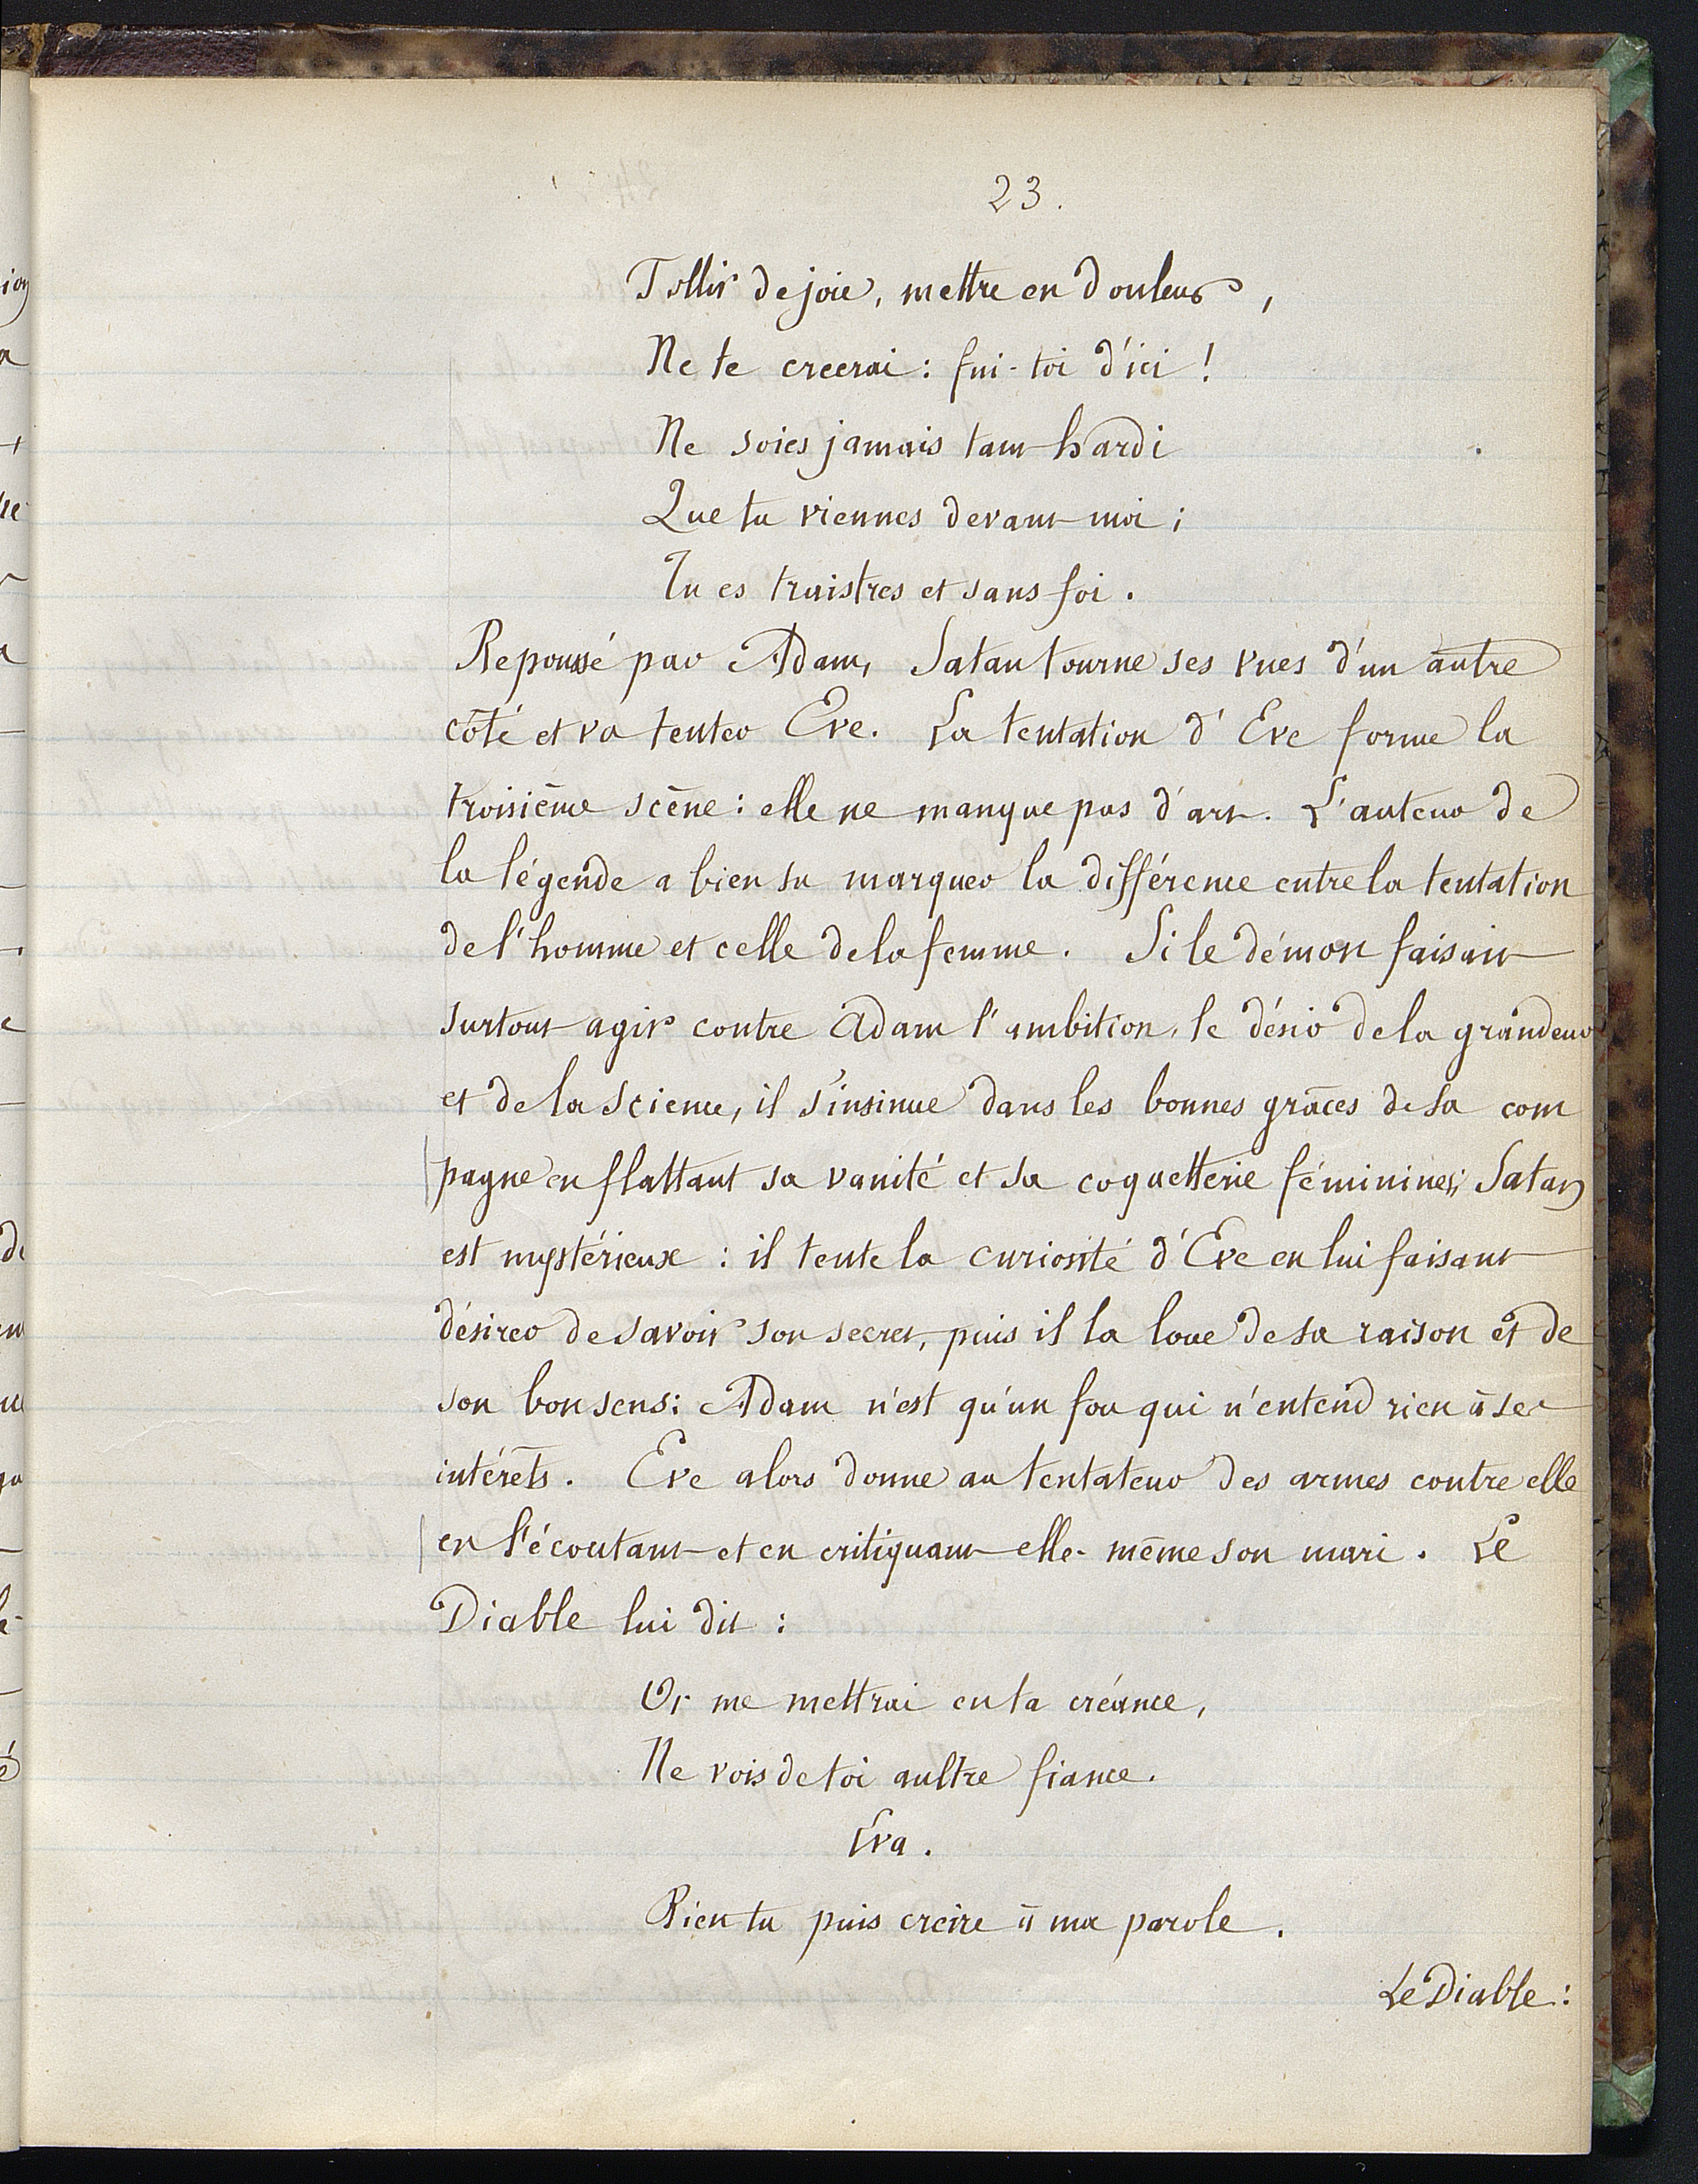 23.
Tollir de joie, mettre en douleur,
Ne te creerai : fui-toi d'ici !
Ne soies jamais tant hardi
Que tu viennes devant moi ;
Tu es traistres et sans foi.
Repoussé par Adam, Satan tourne ses vues d'un autre
côté et va tenter Eve. La tentation d'Eve forme la
troisième scène : elle ne manque pas d'art. L'auteur de
la légende a bien su marquer la différence entre la tentation
de l'homme et celle de la femme. Si le démon faisait
surtout agir contre Adam l'ambition, le désir de la grandeur
et de la science, il s'insinue dans les bonnes grâces de sa com
pagne en flattant sa vanité et sa coquetterie féminines; Satan
est mystérieux : il tente la curiosité d'Eve en lui faisant
désirer de savoir son secret, puis il la loue de sa raison et de
son bon sens : Adam n'est qu'un fou qui n'entend rien à ses
intérêts. Eve alors donne au tentateur des armes contre elle
en l'écoutant et en critiquant elle-même son mari. Le
Diable lui dit :
Or me mettrai en ta créance,
Ne vois de toi aultre fiance.
Eva.
Bien tu puis creire à ma parole.
Le Diable :